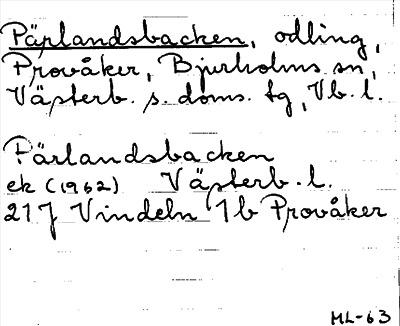 Pärlandsbacken, odling,
Provåker, Bjurholms sn,
Västerb. s. doms. tg, Vb. l.
Pärlandsbacken
ek (1962) Västerb. l.
21 J Vindeln 1b Provåker
ML-63